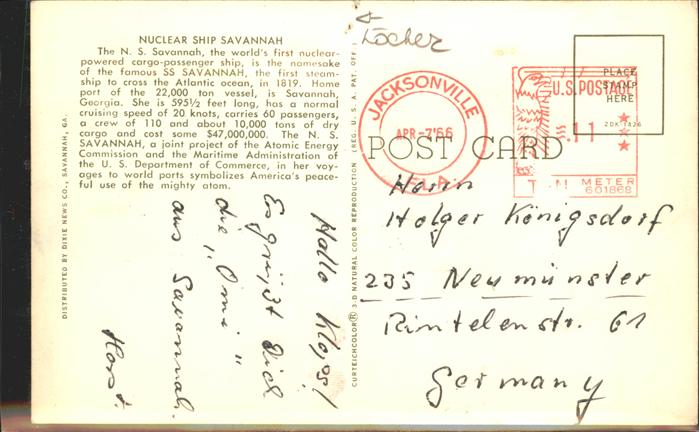 NUCLEAR SHIP SAVANNAH
The N. S. Savannah, the world's first nuclear-
powered cargo-passenger ship, is the namesake
of the famous SS SAVANNAH, the first steam-
ship to cross the Atlantic ocean, in 1819. Home
port of the 22,000 ton vessel, is Savannah,
Georgia. She is 595½ feet long, has a normal
cruising speed of 20 knots, carries 60 passengers,
a crew of 110 and about 10,000 tons of dry
cargo and cost some $47,000,000. The N. S.
SAVANNAH, a joint project of the Atomic Energy
Commission and the Maritime Administration of
the U. S. Department of Commerce, in her voy-
ages to world ports symbolizes America's peace-
ful use of the mighty atom.
DISTRIBUTED BY DIXIE NEWS CO., SAVANNAH, GA.
Hallo Klops!
Es grüßt Dich
die "Omi"
aus Savannah.
Horst.
CURTEICHCOLOR® 3-D NATURAL COLOR REPRODUCTION (REG. U. S. A. PAT. OFF.)
Löcher
JACKSONVILLE
APR-7'66
FLA
U.S. POSTAGE
11
METER
601868
PLACE
STAMP
HERE
2DK-1426
POST CARD
Herrn
Holger Königsdorf
235 Neumünster
Rintelenstr. 61
Germany